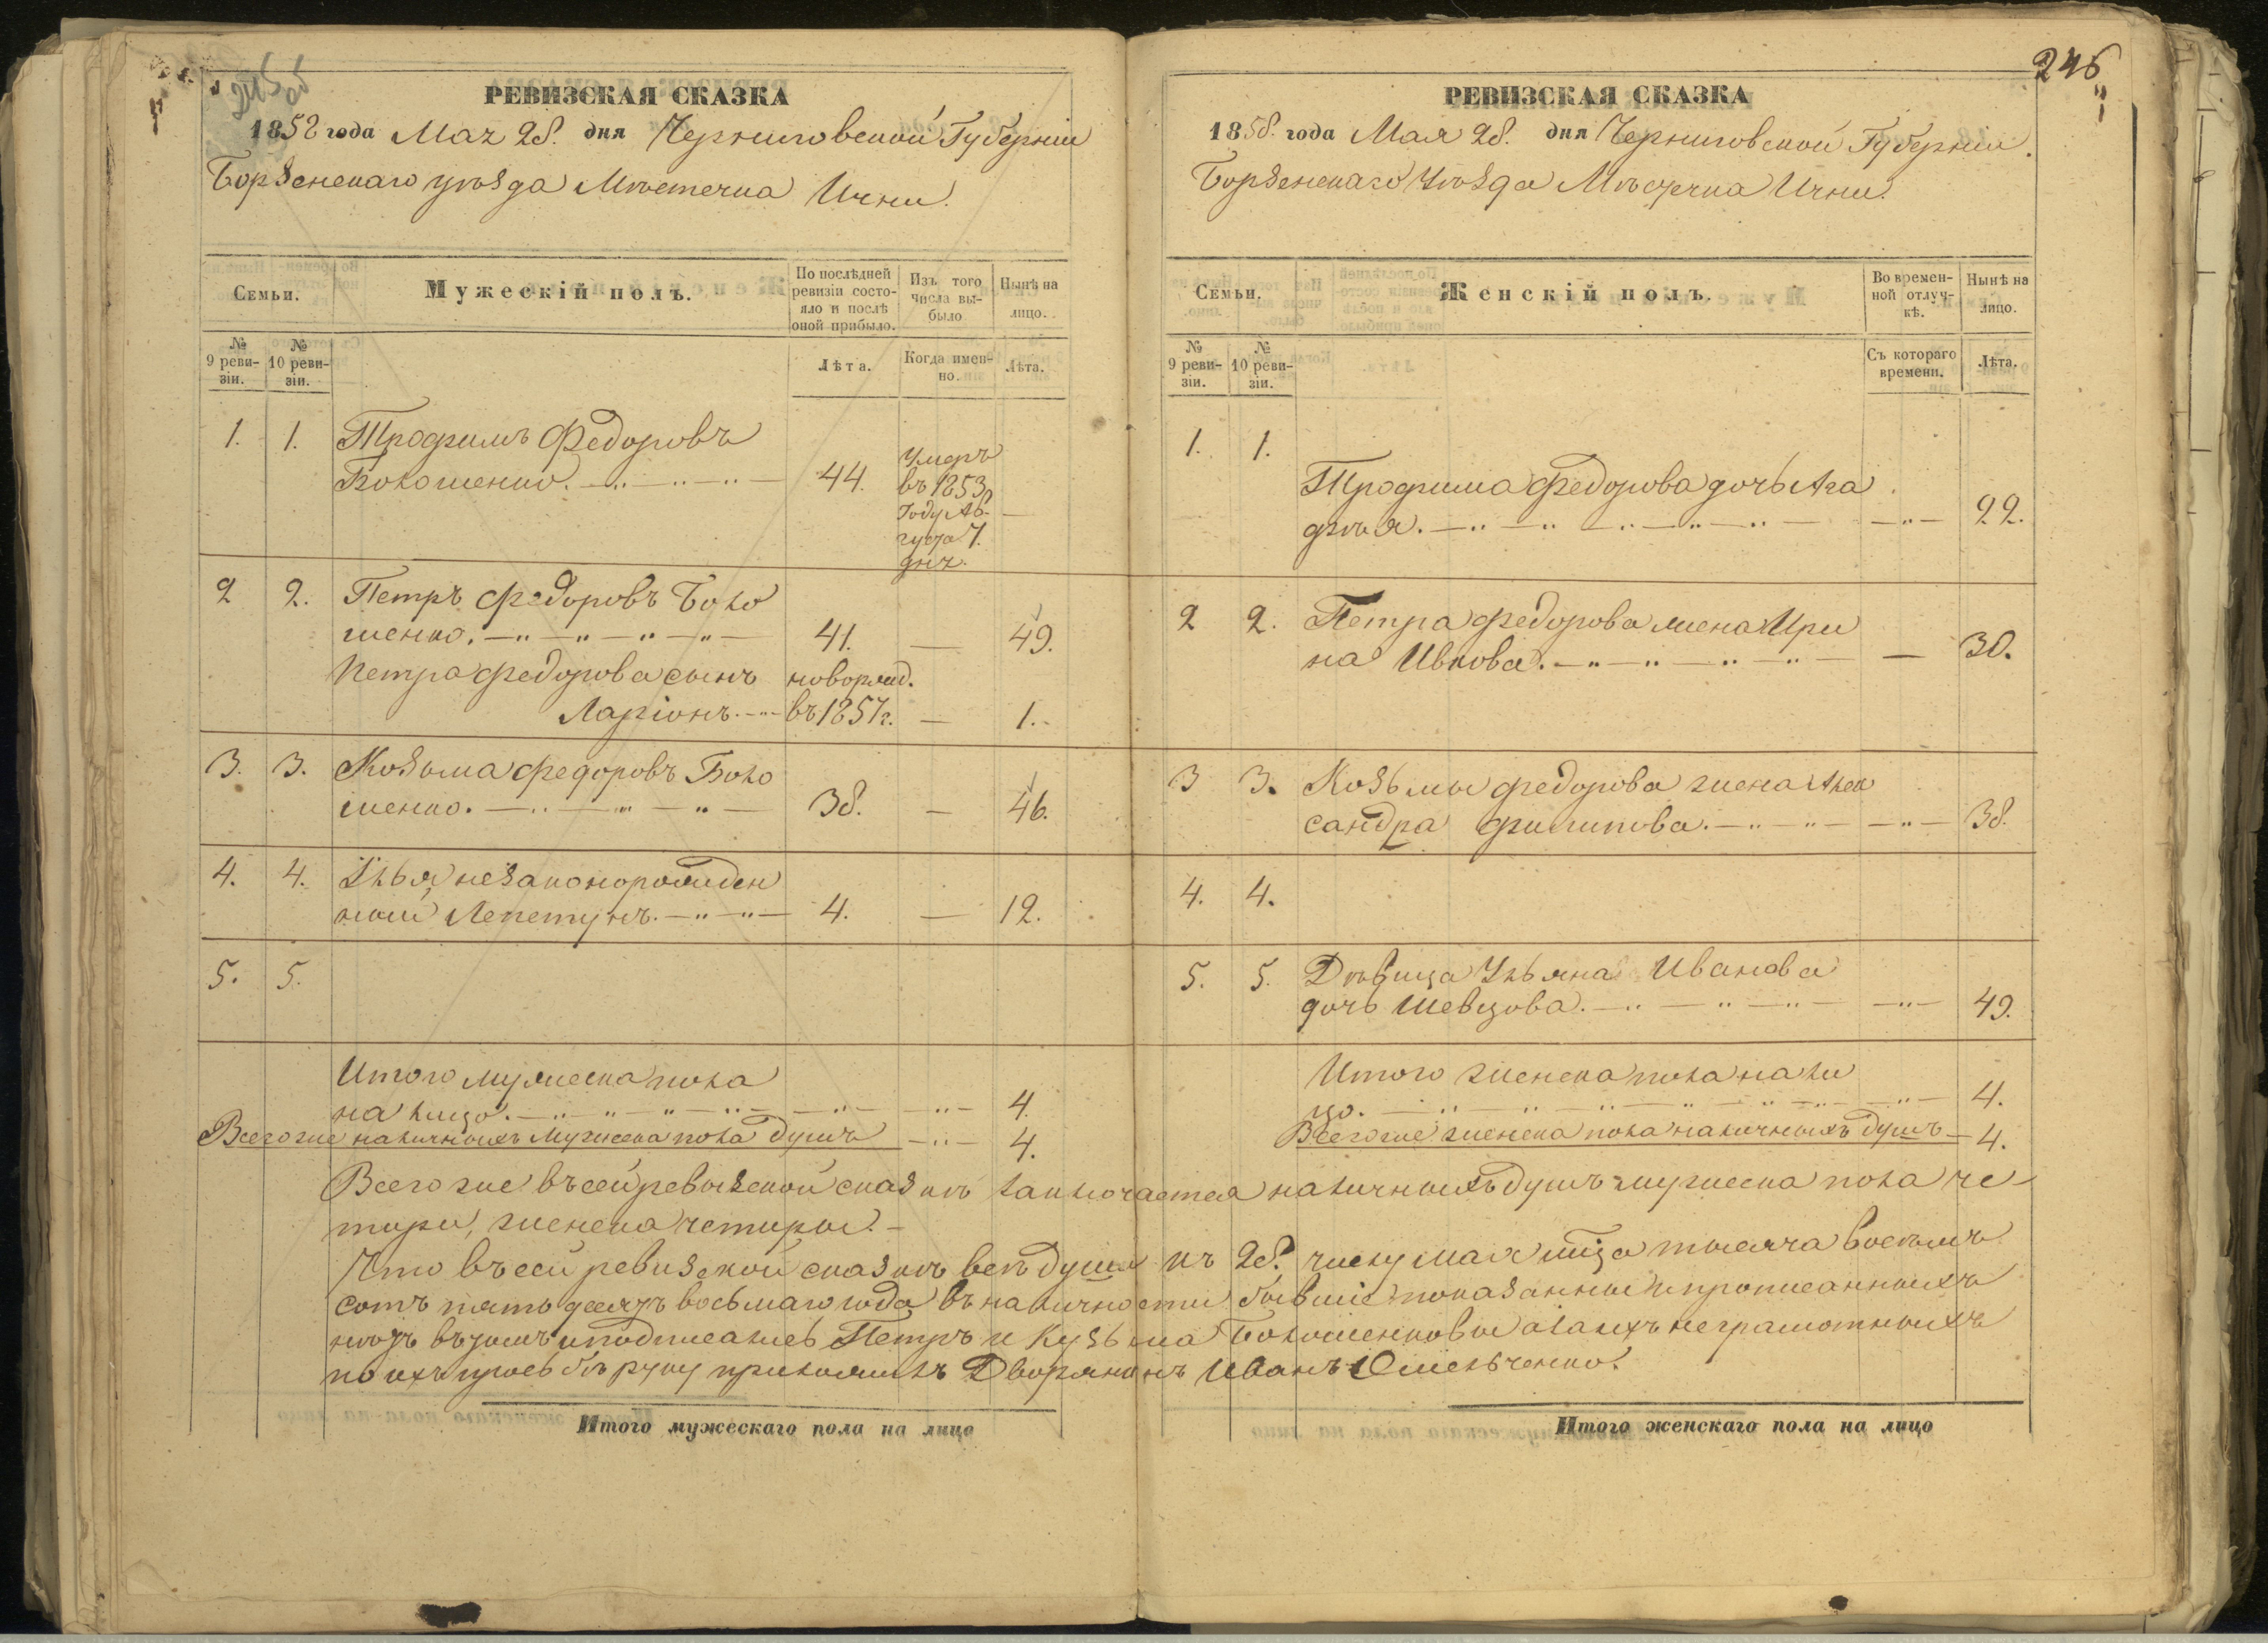 РЕВИЗСКАЯ СКАЗКА
1858 года Мая 28. дня Черниговской Губерніи
Борзенскаго уѣзда Мѣстечка Ични.
Семьи.
Мужескій полъ.
По послѣдней ревизіи состояло и послѣ оной прибыло.
Изъ того числа выбыло
Нынѣ на лицо.
№ 9 ревизіи.
№ 10 ревизіи.
Лѣта.
Когда именно.
Лѣта.
1. 1. Трофимъ Федоровъ
Болошенко. 44. Умеръ
въ 1853
году Ав-
густа 7.
дня.
2 2. Петръ Федоровъ Боло
шенко. 41. — 49.
Петра Федорова сынъ новорожд.
Ларіонъ. въ 1857 г. — 1.
3. 3. Козьма Федоровъ Боло
шенко. 38. — 46.
4. 4. Илья незаконорожден
ный Лепетунъ. 4. — 12.
5. 5.
Итого мужеска пола
на лицо. 4.
Всего же наличныхъ мужеска пола душъ 4.
РЕВИЗСКАЯ СКАЗКА
246
1858. года Мая 28. дня Черниговской Губерніи.
Борзенскаго Уѣзда Мѣстечка Ични.
Семьи.
Женскій полъ.
Во временной отлучкѣ.
Нынѣ на лицо.
№ 9 ревизіи.
№ 10 ревизіи.
Съ котораго времени.
Лѣта.
1. 1.
Трофима Федорова дочь Ага
фья. 22.
2 2. Петра Федорова жена Ири
на Ивкова. — 30.
3 3. Козьмы Федорова жена Алек
сандра Филипова. 38.
4. 4.
5. 5. Дѣвица Ульяна Иванова
дочь Шевцова. 49.
Итого женска пола на ли
цо. 4.
Всего же женска пола наличныхъ душъ 4.
Всего же въ сей ревызской сказкѣ заключается наличныхъ душъ мужеска пола че-
тыри, женска четыры.
Что въ сей ревизской сказкѣ всѣ души къ 28. числу мая мца тысяча восемъ
сотъ пятьдесятъ восьмаго года въ наличности бывшіе показанны и прописанныхъ
нѣтъ въ томъ и подписались Петръ и Кузьма Болошенковы а за ихъ неграмотныхъ
по ихъ прозьбѣ руку приложилъ Дворянинъ Иванъ Омельченко.
Итого мужескаго пола на лицо
Итого женскаго пола на лицо